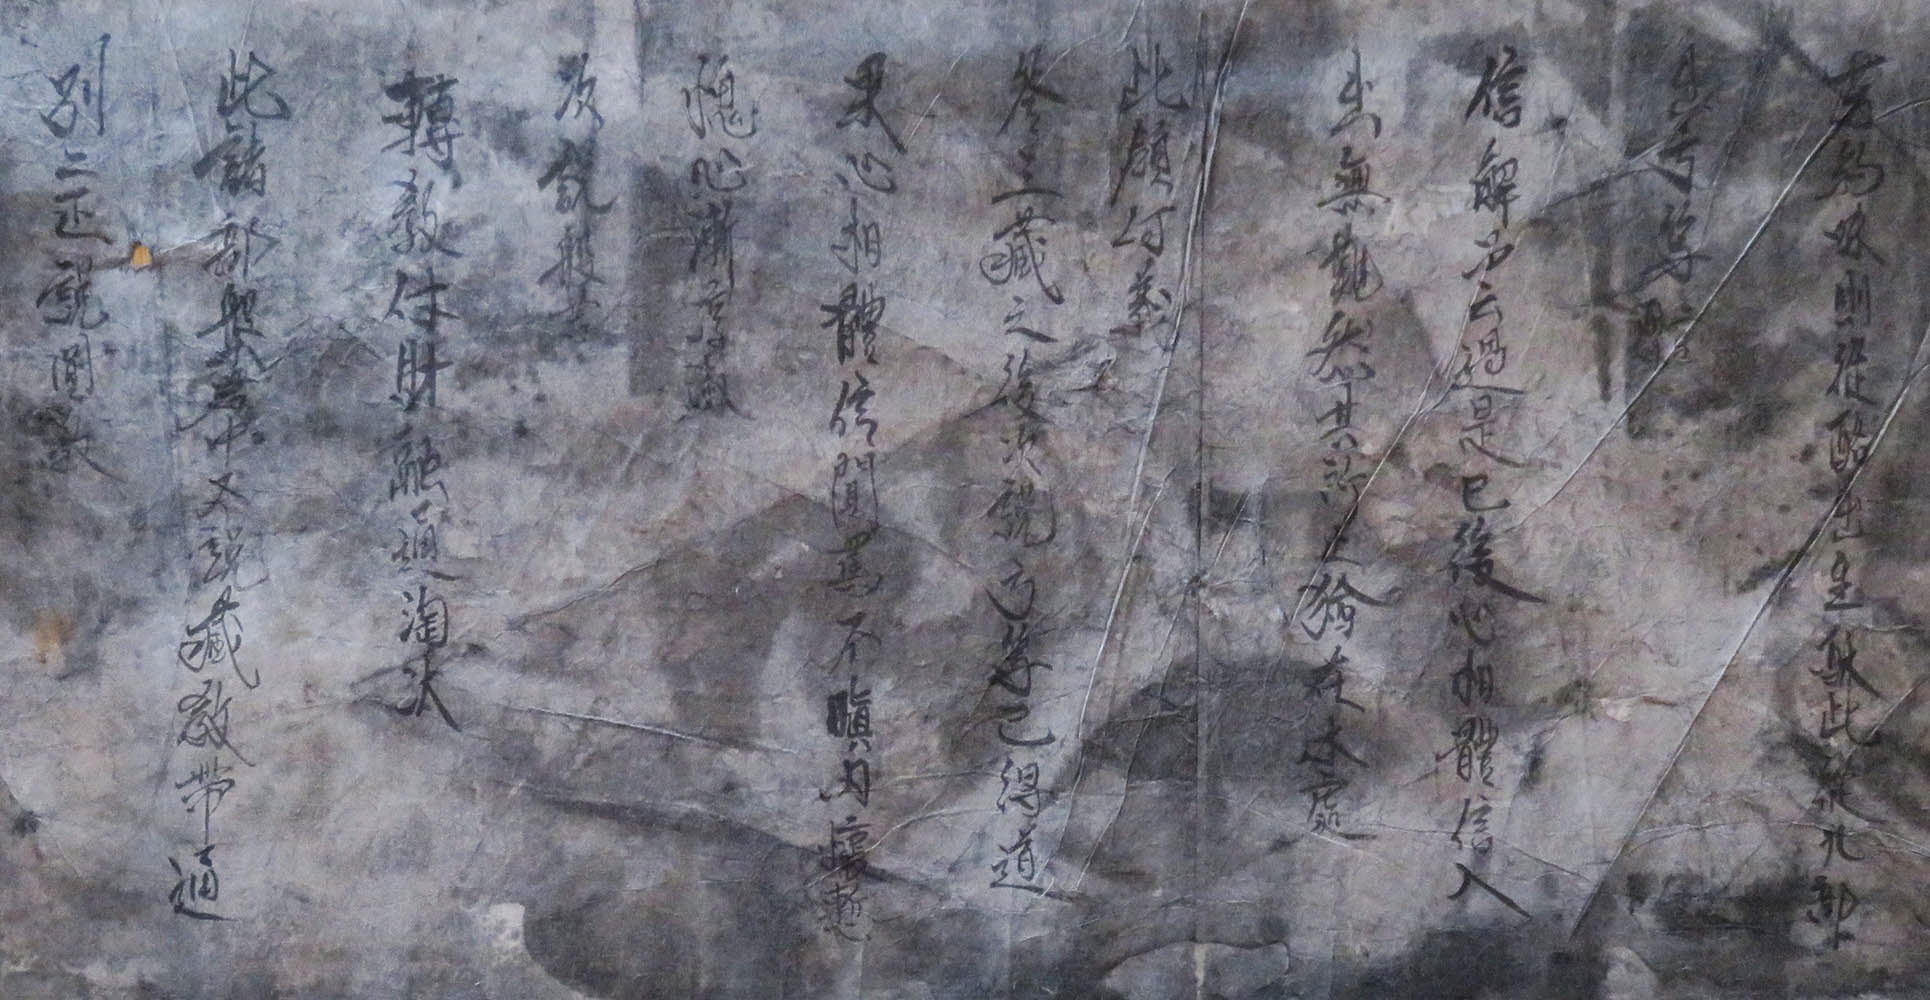 若約味則從酪出生酥此從九部
出方等
信解品云過是已後心相體信入
出無難然其所止猶在本處
此領何義
答三藏之後次說方等已得道
果心相體信聞罵不瞋內懷慚
愧心漸淳淑
次說般若
轉教付財融通淘汰
此諸部般若中不說藏教帶通
別二正說圓教